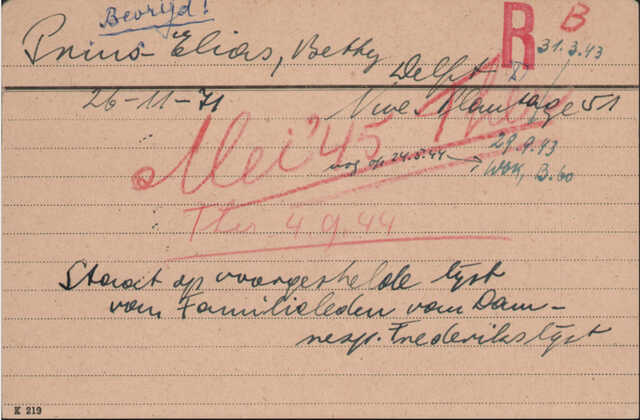 Bevrijd!
R B
Prins-Elias, Betty
31.3.43
Delft
26-11-71 Nwe Plantage 51
Mei '45
29.9.43
nog op 24.5.44
Wbk, B.60
Ther 4 9.44
Staat op voorgestelde lijst
van Familieleden van Dam-
resp. Frederikslijst
K 219